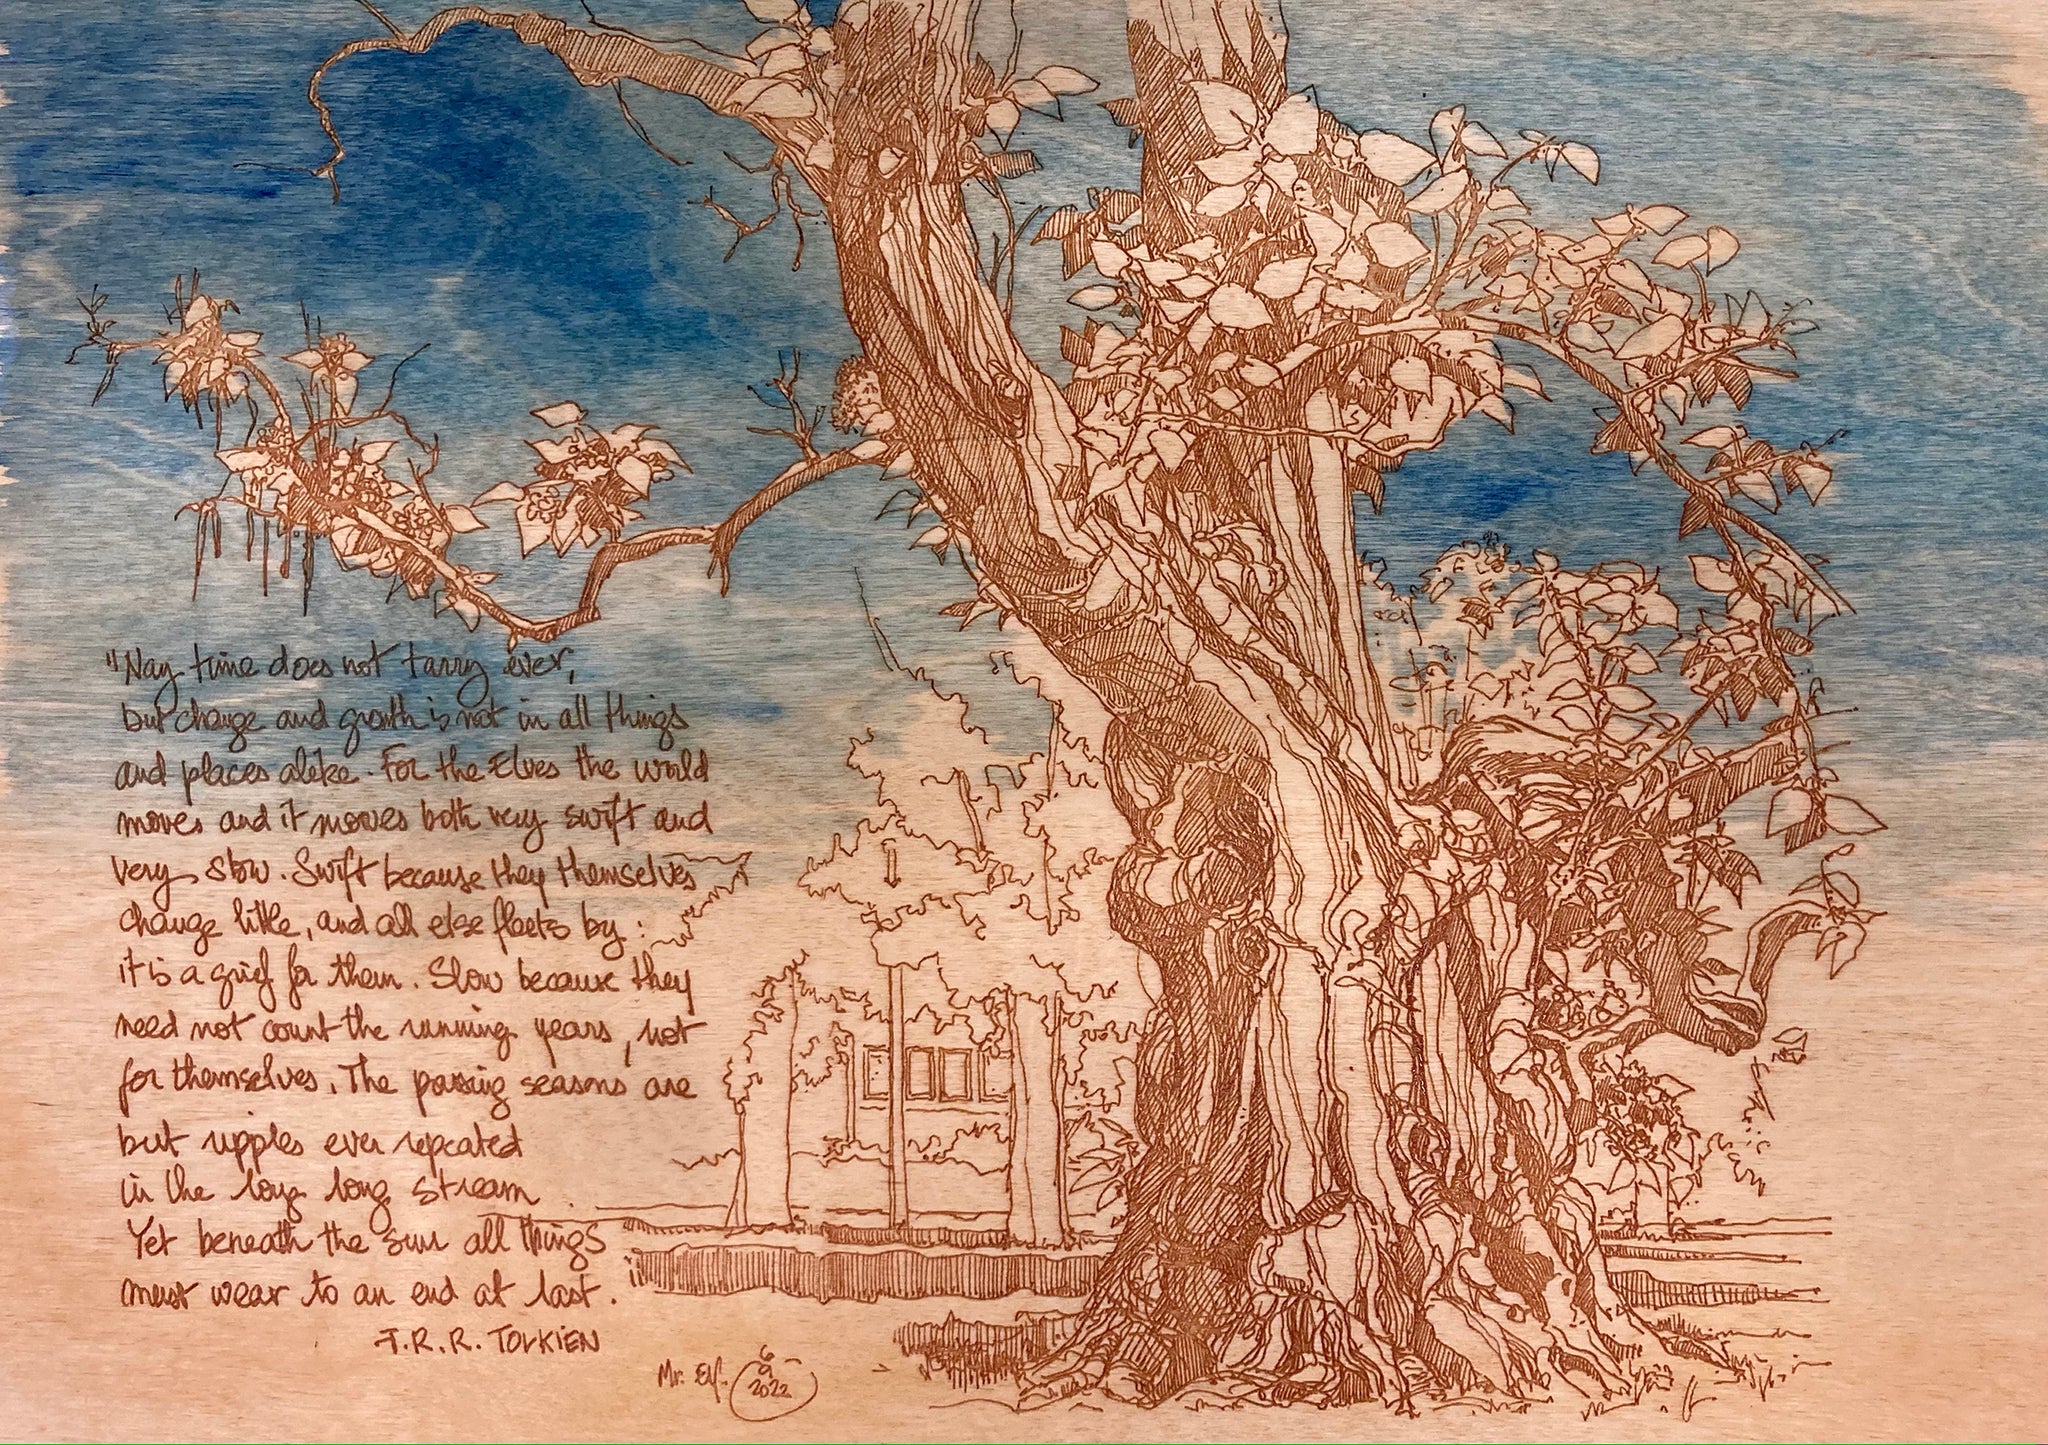 "Nay time does not tarry ever,
but change and growth is not in all things
and places alike. For the Elves the world
moves and it moves both very swift and
very slow. Swift because they themselves
change little, and all else fleets by:
it is a grief for them. Slow because they
need not count the running years, not
for themselves. The passing seasons are
but ripples ever repeated
in the long long stream
Yet beneath the sun all things
must wear to an end at last.
J.R.R. TOLKIEN
Mr. Elf.
6
9
2022